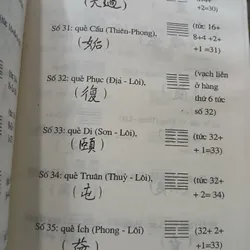 +2=30)
Số 31: quẻ Cấu (Thiên-Phong), (tức 16+
8+4 +2+
(姤) +1 =31)
Số 32: quẻ Phục (Địa - Lôi), (vạch liền
ở hàng
(復) thứ 6 tức
số 32)
Số 33: quẻ Di (Sơn - Lôi), (tức 32+
(頤) + 1=33)
Số 34: quẻ Truân (Thuỷ - Lôi), (tức 32+
(屯) + 2= 34)
Số 35: quẻ Ích (Phong - Lôi) (32+ 2+
+1=35)